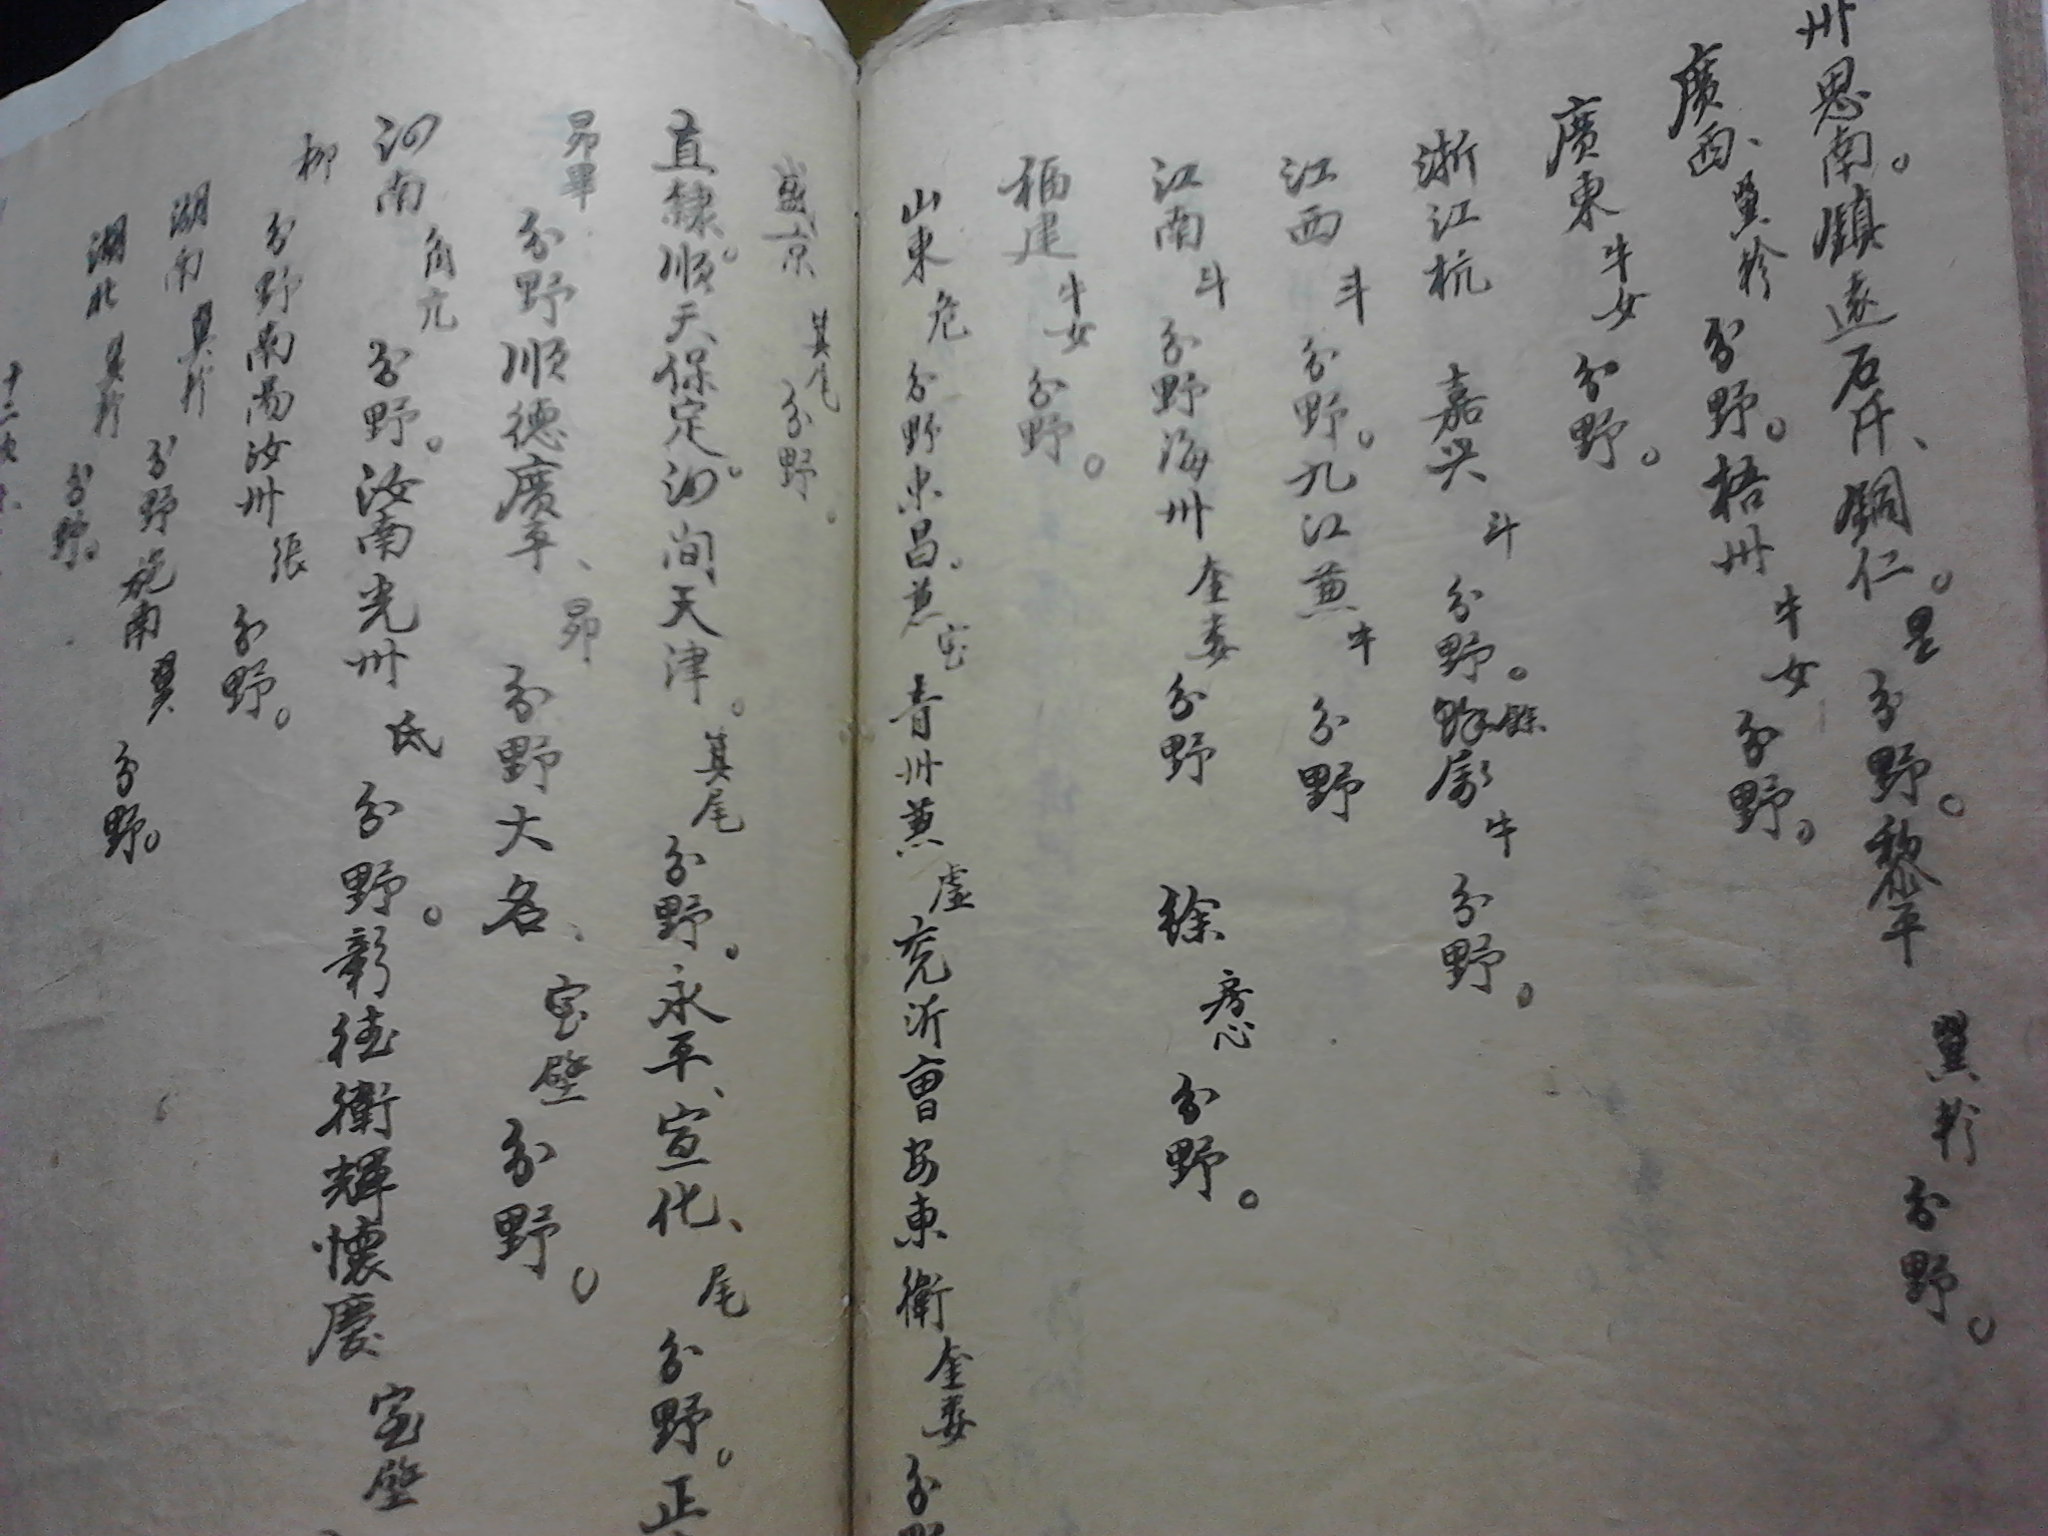 卅思南。鎮遠石阡、銅仁。星分野。黎平翼軫分野。
廣西、翼軫分野。梧州牛女分野。
廣東牛女分野。
浙江杭嘉兴斗分野。餘属牛分野。
江西斗分野。九江兼牛分野
江南斗分野海州奎婁分野徐房心分野。
福建牛女分野。
山東危分野東昌。兼室青州兼虚兗沂曹安東衛奎婁分野
盛京箕尾分野。
直隸。順天保定。河间天津。箕尾分野。永平、宣化、尾分野。正
昴畢分野順德廣平、昴分野大名、室壁分野。
河南角亢分野。汝南光州氐分野。彰德衛輝懷慶室壁
柳分野南陽汝州張分野。
湖南翼軫分野施南翼分野。
湖北翼軫分野。
十二次